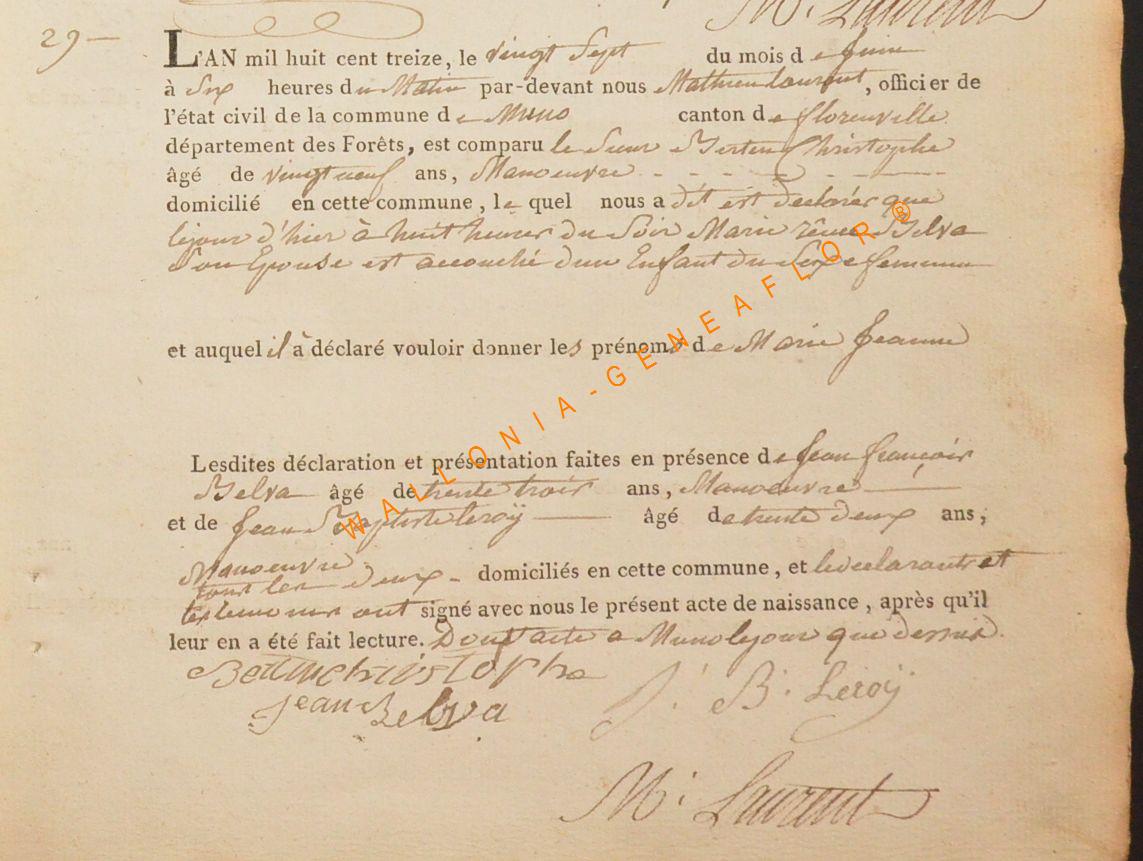 M. Laurent
29 —
L'AN mil huit cent treize, le vingt Sept du mois de Juin
à Six heures du Matin par-devant nous Mathieu Laurent, officier de
l'état civil de la commune de Muno canton de florenville
département des Forêts, est comparu le Sieur Bertin Christophe
âgé de vingt neuf ans, Manoeuvre
domicilié en cette commune, le quel nous a dit est declarée que
le jour d'hier à huit heures du Soir Marie Belva
Son Epouse est accouché d'un Enfant du Sexe femenin
et auquel il à déclaré vouloir donner les prénoms de Marie Jeanne
Lesdites déclaration et présentation faites en présence de Jean françois
Belva âgé de trente trois ans, Manoeuvre
et de Jean Baptiste leroÿ âgé de trente deux ans,
Manoeuvre
tous les deux domiciliés en cette commune, et le declarants et
les temoins ont signé avec nous le présent acte de naissance, après qu'il
leur en a été fait lecture. Dont acte a Muno le jour que dessus.
christophe
jean Belva
J. B. Leroÿ
M. Laurent
WALLONIA-GENEAFLOR ®